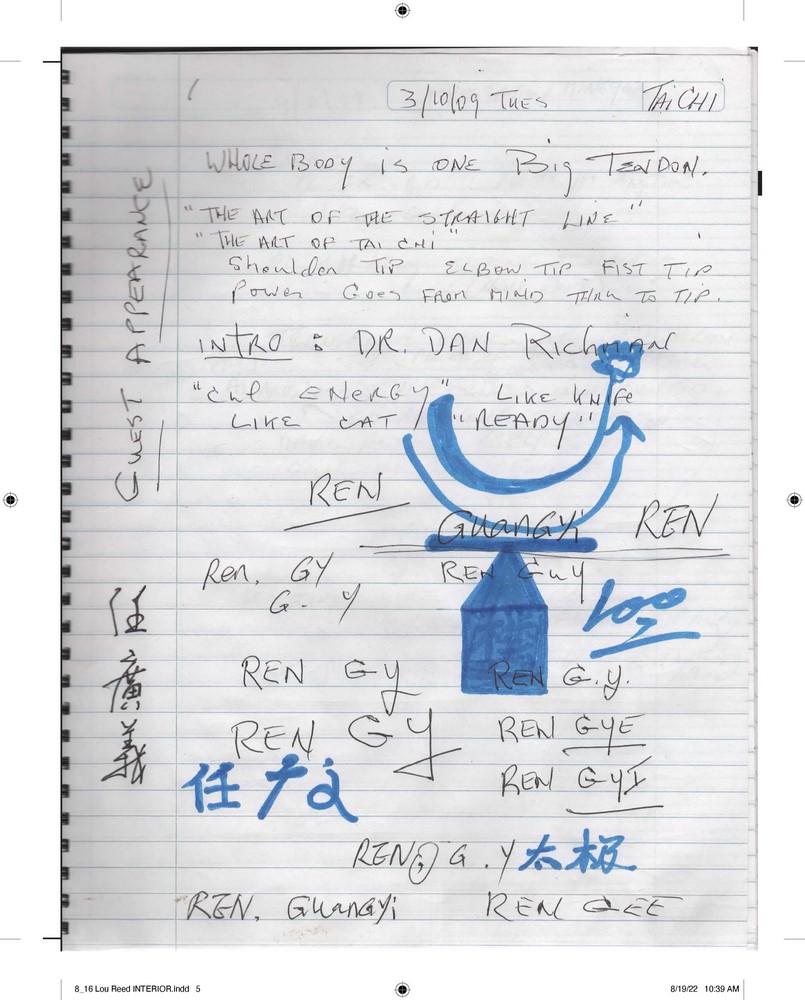 3/10/09 TUES TAI CHI
WHOLE BODY is ONE Big TENDON.
"THE ART OF THE STRAIGHT LINE"
"THE ART OF TAI CHI"
Shoulder TIP ELBOW TIP FIST TIP
Power Goes FROM MIND THRU TO TIP.
INTRO : DR. DAN RichMAN
"Cut ENERGY" LIKE KNIfe
LIKE CAT "READY"
GUEST APPEARANCE
REN GuANGYi REN
Ren. GY REN GuY
G. Y
REN GY REN G.Y.
REN GY REN GYE
任广义 REN GYI
任廣義
REN, G.Y 太极
REN. GuANGYi REN GEE
8_16 Lou Reed INTERIOR.indd 5 8/19/22 10:39 AM